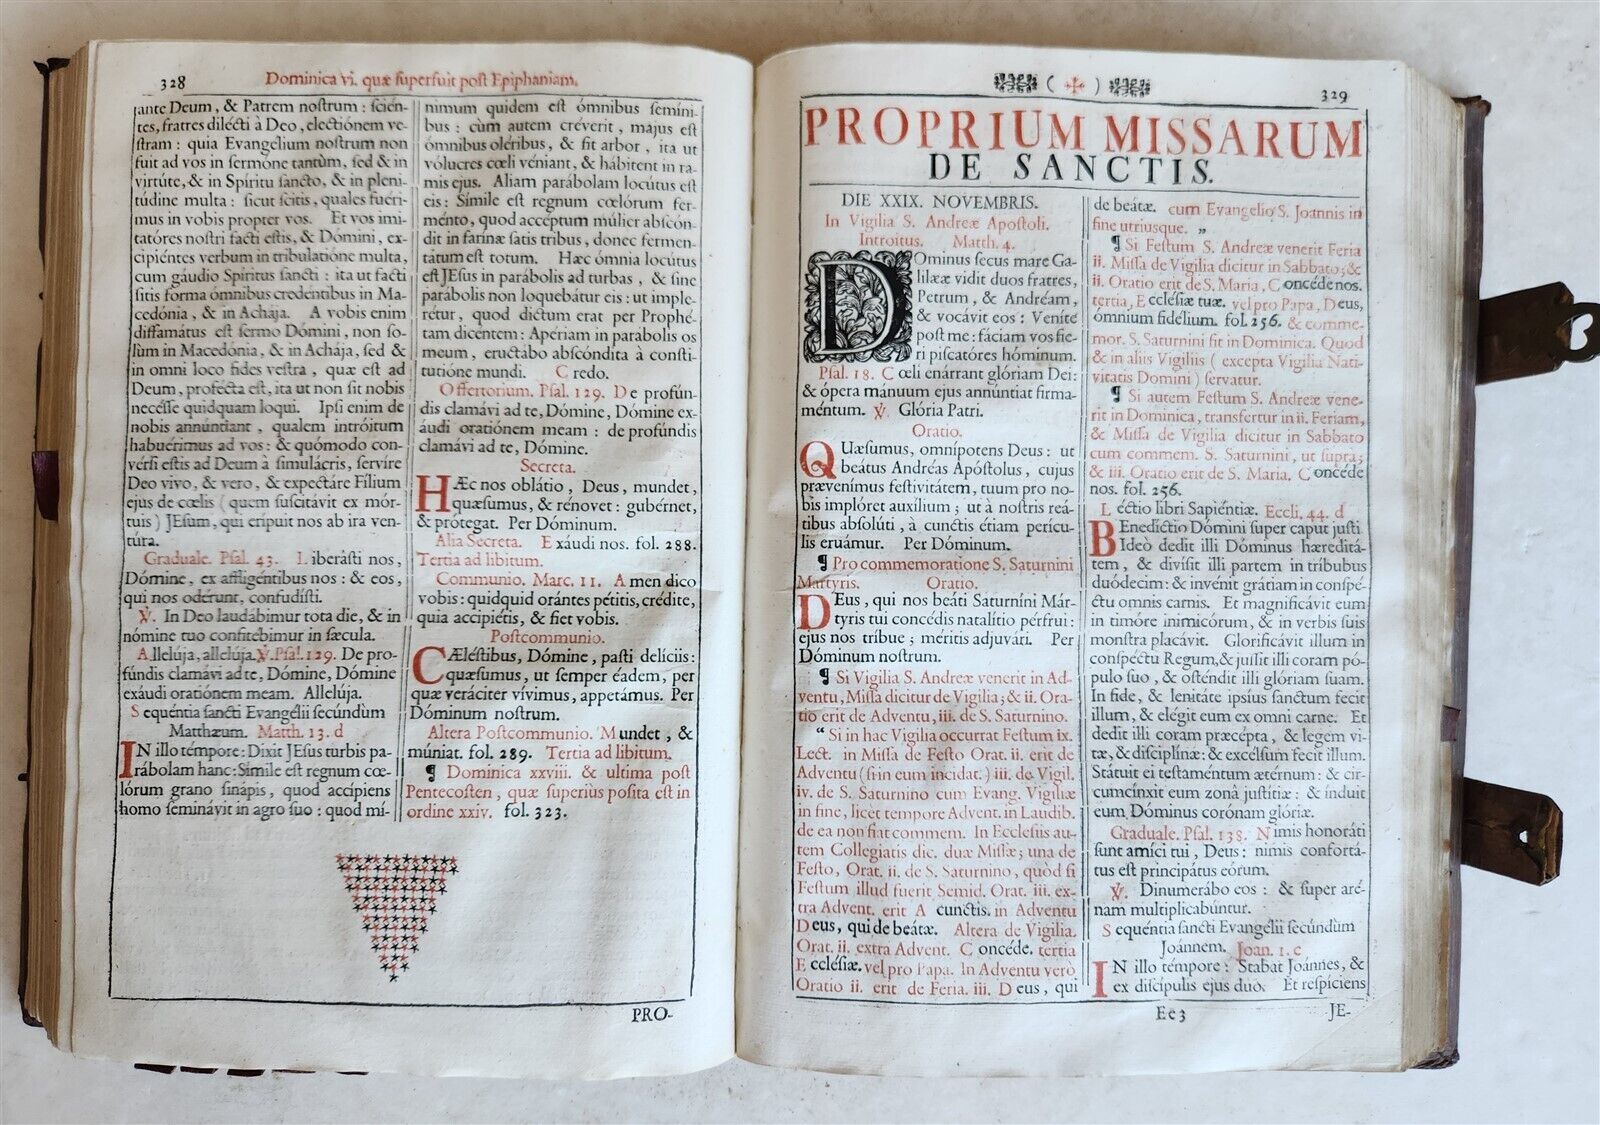 328
Dominica vi. quæ superfuit post Epiphaniam.
ante Deum, & Patrem nostrum : scién-
tes, fratres dilécti à Deo, electiónem ve-
stram : quia Evangelium nostrum non
fuit ad vos in sermóne tantùm, sed & in
virtúte, & in Spíritu sancto, & in pleni-
túdine multa : sicut scitis, quales fuéri-
mus in vobis propter vos. Et vos imi-
tatóres nostri facti estis, & Dómini, ex-
cipiéntes verbum in tribulatióne multa,
cum gáudio Spíritus sancti : ita ut facti
sitis forma ómnibus credéntibus in Ma-
cedónia, & in Achája. A vobis enim
diffamátus est sermo Dómini, non so-
lùm in Macedónia, & in Achája, sed &
in omni loco fides vestra, quæ est ad
Deum, profécta est, ita ut non sit nobis
necésse quidquam loqui. Ipsi enim de
nobis annúntiant, qualem intróitum
habuérimus ad vos : & quómodo con-
vérsi estis ad Deum à simulácris, servíre
Deo vivo, & vero, & expectáre Fílium
ejus de cœlis ( quem suscitávit ex mór-
tuis ) JEsum, qui eripuit nos ab ira ven-
túra.
Graduale. Psal. 43. Liberásti nos,
Dómine, ex affligéntibus nos : & eos,
qui nos odérunt, confudísti.
℣. In Deo laudábimur tota die, & in
nómine tuo confitébimur in sæcula.
Allelúja, allelúja. ℣. Psal. 129. De pro-
fúndis clamávi ad te, Dómine, Dómine
exáudi oratiónem meam. Allelúja.
Sequéntia sancti Evangélii secúndùm
Matthæum. Matth. 13. d
IN illo témpore : Dixit JEsus turbis pa-
rábolam hanc : Símile est regnum cœ-
lórum grano sinápis, quod accípiens
homo seminávit in agro suo : quod mí-
nimum quidem est ómnibus semíni-
bus : cùm autem créverit, majus est
ómnibus oléribus, & fit arbor, ita ut
vólucres cœli véniant, & hábitent in ra-
mis ejus. Aliam parábolam locútus est
eis : Símile est regnum cœlórum fer-
ménto, quod accéptum múlier abscón-
dit in farínæ satis tribus, donec fermen-
tátum est totum. Hæc ómnia locútus
est JEsus in parábolis ad turbas, & sine
parábolis non loquebátur eis : ut imple-
rétur, quod dictum erat per Prophé-
tam dicentem : Apériam in parabolis os
meum, eructábo abscóndita à consti-
tutióne mundi. Credo.
Offertorium. Psal. 129. De profún-
dis clamávi ad te, Dómine, Dómine ex-
áudi oratiónem meam : de profúndis
clamávi ad te, Dómine.
Secreta.
HÆc nos oblátio, Deus, mundet,
quæsumus, & rénovet : gubérnet,
& prótegat. Per Dóminum.
Alia Secreta. Exáudi nos. fol. 288.
Tertia ad libitum.
Communio. Marc. 11. Amen dico
vobis : quidquid orántes pétitis, crédite,
quia accipiétis, & fiet vobis.
Postcommunio.
CÆléstibus, Dómine, pasti delíciis :
quæsumus, ut semper éadem, per
quæ veráciter vívimus, appetámus. Per
Dóminum nostrum.
Altera Postcommunio. Mundet, &
múniat. fol. 289. Tertia ad libitum.
¶ Dominica xxviii. & ultima post
Pentecosten, quæ superius posita est in
ordine xxiv. fol. 323.
PRO-
( ✠ )
329
PROPRIUM MISSARUM
DE SANCTIS.
DIE XXIX. NOVEMBRIS.
In Vigilia S. Andreæ Apostoli.
Introitus. Matth. 4.
DOminus secus mare Ga-
lilææ vidit duos fratres,
Petrum, & Andréam,
& vocávit eos : Veníte
post me : fáciam vos fíe-
ri piscatóres hóminum.
Psal. 18. Cœli enárrant glóriam Dei :
& ópera mánuum ejus annúntiat firma-
méntum. ℣. Glória Patri.
Oratio.
QUæsumus, omnípotens Deus : ut
beátus Andréas Apóstolus, cujus
prævenímus festivitátem, tuum pro no-
bis implóret auxílium ; ut à nostris reá-
tibus absolúti, à cunctis étiam perícu-
lis eruámur. Per Dóminum.
¶ Pro commemoratione S. Saturnini
Martyris. Oratio.
DEus, qui nos beáti Saturníni Már-
tyris tui concédis natalítio pérfrui :
ejus nos tríbue ; méritis adjuvári. Per
Dóminum nostrum.
¶ Si Vigilia S. Andreæ venerit in Ad-
ventu, Missa dicitur de Vigilia ; & ii. Ora-
tio erit de Adventu, iii. de S. Saturnino.
“ Si in hac Vigilia occurrat Festum ix.
Lect. in Missa de Festo Orat. ii. erit de
Adventu ( si in eum incidat. ) iii. de Vigil.
iv. de S. Saturnino cum Evang. Vigiliæ
in fine, licet tempore Advent. in Laudib.
de ea non fiat commem. In Ecclesiis au-
tem Collegiatis dic. duæ Missæ ; una de
Festo, Orat. ii. de S. Saturnino, quòd si
Festum illud fuerit Semid. Orat. iii. ex-
tra Advent. erit A cunctis. in Adventu
Deus, qui de beátæ. Altera de Vigilia.
Orat. ii. extra Advent. Concéde. tertia
Ecclésiæ. vel pro Papa. In Adventu verò
Oratio ii. erit de Feria. iii. Deus, qui
de beátæ. cum Evangelio S. Joannis in
fine utriusque. „
¶ Si Festum S. Andreæ venerit Feria
ii. Missa de Vigilia dicitur in Sabbato ; &
ii. Oratio erit de S. Maria, Concéde nos.
tertia, Ecclésiæ tuæ. vel pro Papa, Deus,
ómnium fidélium. fol. 256. & comme-
mor. S. Saturnini fit in Dominica. Quod
& in aliis Vigiliis ( excepta Vigilia Nati-
vitatis Domini ) servatur.
¶ Si autem Festum S. Andreæ vene-
rit in Dominica, transfertur in ii. Feriam,
& Missa de Vigilia dicitur in Sabbato
cum commem. S. Saturnini, ut supra ;
& iii. Oratio erit de S. Maria, Concéde
nos. fol. 256.
Léctio libri Sapiéntiæ. Eccli. 44. d
BEnedíctio Dómini super caput justi
Ideò dedit illi Dóminus hæreditá-
tem, & divísit illi partem in tríbubus
duódecim : & invénit grátiam in conspé-
ctu omnis carnis. Et magnificávit eum
in timóre inimicórum, & in verbis suis
monstra placávit. Glorificávit illum in
conspéctu Regum, & jussit illi coram pó-
pulo suo, & osténdit illi glóriam suam.
In fide, & lenitáte ipsíus sanctum fecit
illum, & elégit eum ex omni carne. Et
dedit illi coram præcépta, & legem vi-
tæ, & disciplínæ : & excélsum fecit illum.
Státuit ei testaméntum ætérnum : & cir-
cumcínxit eum zonâ justítiæ : & índuit
eum Dóminus corónam glóriæ.
Graduale. Psal. 138. Nimis honoráti
sunt amíci tui, Deus : nimis confortá-
tus est principátus eórum.
℣. Dinumerábo eos : & super aré-
nam multiplicabúntur.
Sequéntia sancti Evangélii secúndùm
Joánnem. Joan. 1. c
IN illo témpore : Stabat Joánnes, &
ex discípulis ejus duo. Et respíciens
Ee 3
JE-